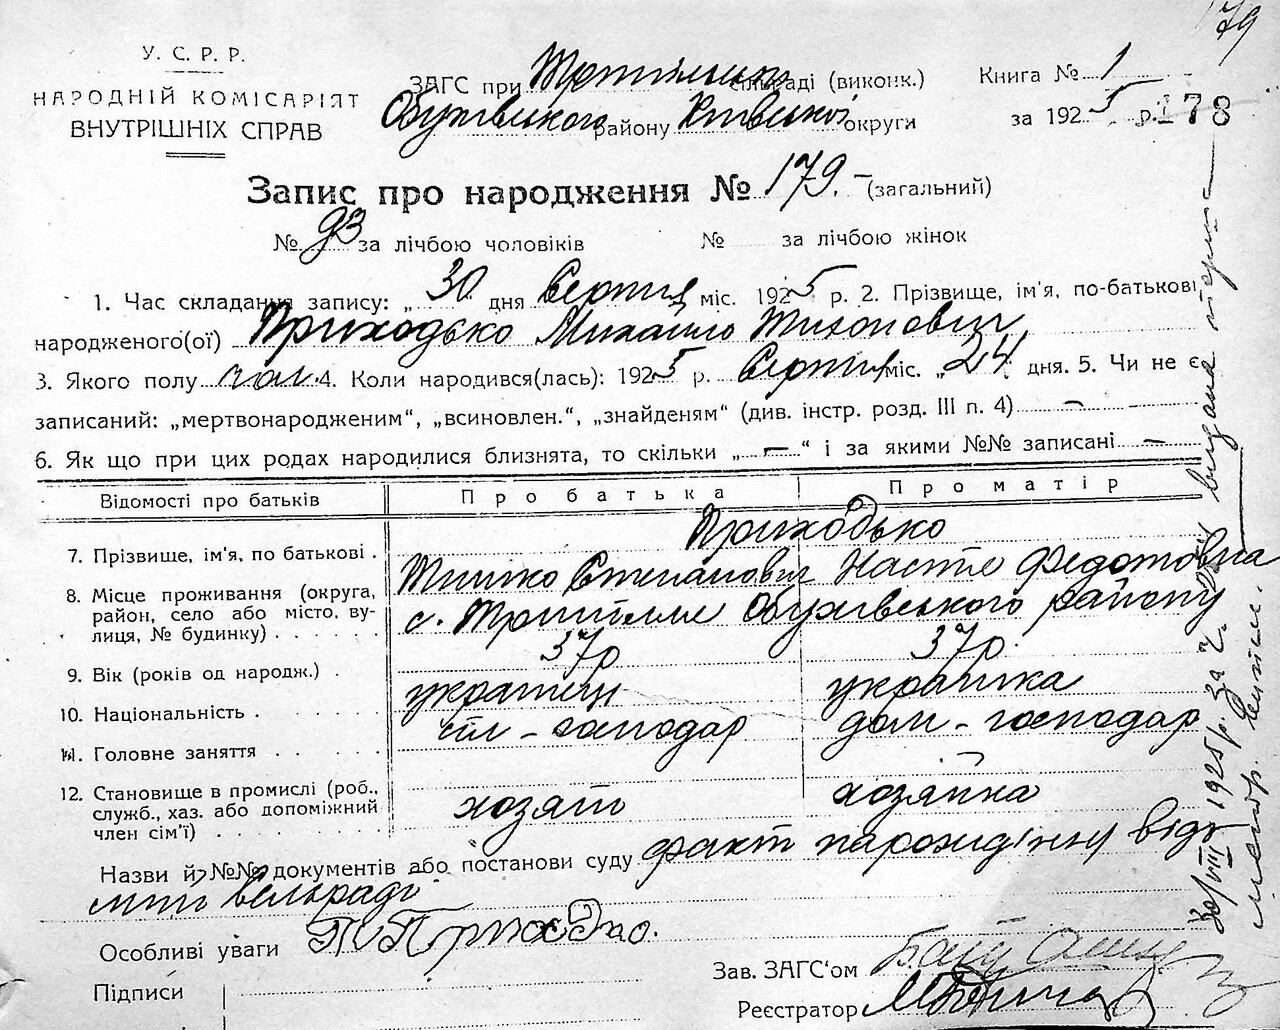 179
У. С. Р. Р.
НАРОДНІЙ КОМІСАРІЯТ
ВНУТРІШНІХ СПРАВ
ЗАГС при Трипільській сільраді (виконк.)
Обухівського району Київської округи
Книга № 1
за 1925 р. 178
Запис про народження № 179. – (загальний)
№ 93 за лічбою чоловіків № за лічбою жінок
1. Час складання запису: „ 30 дня Серпня міс. 1925 р. 2. Прізвище, ім'я, по-батькові
народженого(ої) Приходько Михайло Тихонович
3. Якого полу чол. 4. Коли народився(лась): 1925 р. Серпня міс. „ 24 дня. 5. Чи не є
записаний: „мертвонародженим“, „всиновлен.“, „знайденям“ (див. інстр. розд. III п. 4) –
6. Як що при цих родах народилися близнята, то скільки „ – “ і за якими №№ записані –
Відомості про батьків Про батька Про матір
Приходько
7. Прізвище, ім'я, по батькові .
Тишко Степанович Настя Федотовна
8. Місце проживання (округа,
район, село або місто, ву-
лиця, № будинку) . . . . . .
с. Трипілля Обухівського району
9. Вік (років од народж.) . 37 р 37 р.
10. Національність . українец українка
11. Головне заняття . . . . . . сіл – господар дом – господар
12. Становище в промислі (роб.,
служб., хаз. або допоміжний
член сім'ї) . . . . . . хозяїн хозяйка
Назви й №№ документів або постанови суду факт народжіння відо
мий сельраді
Особливі уваги Т Приходько.
Підписи
Зав. ЗАГС'ом
Реєстратор
30/VIII 1925 р. за ч. видана